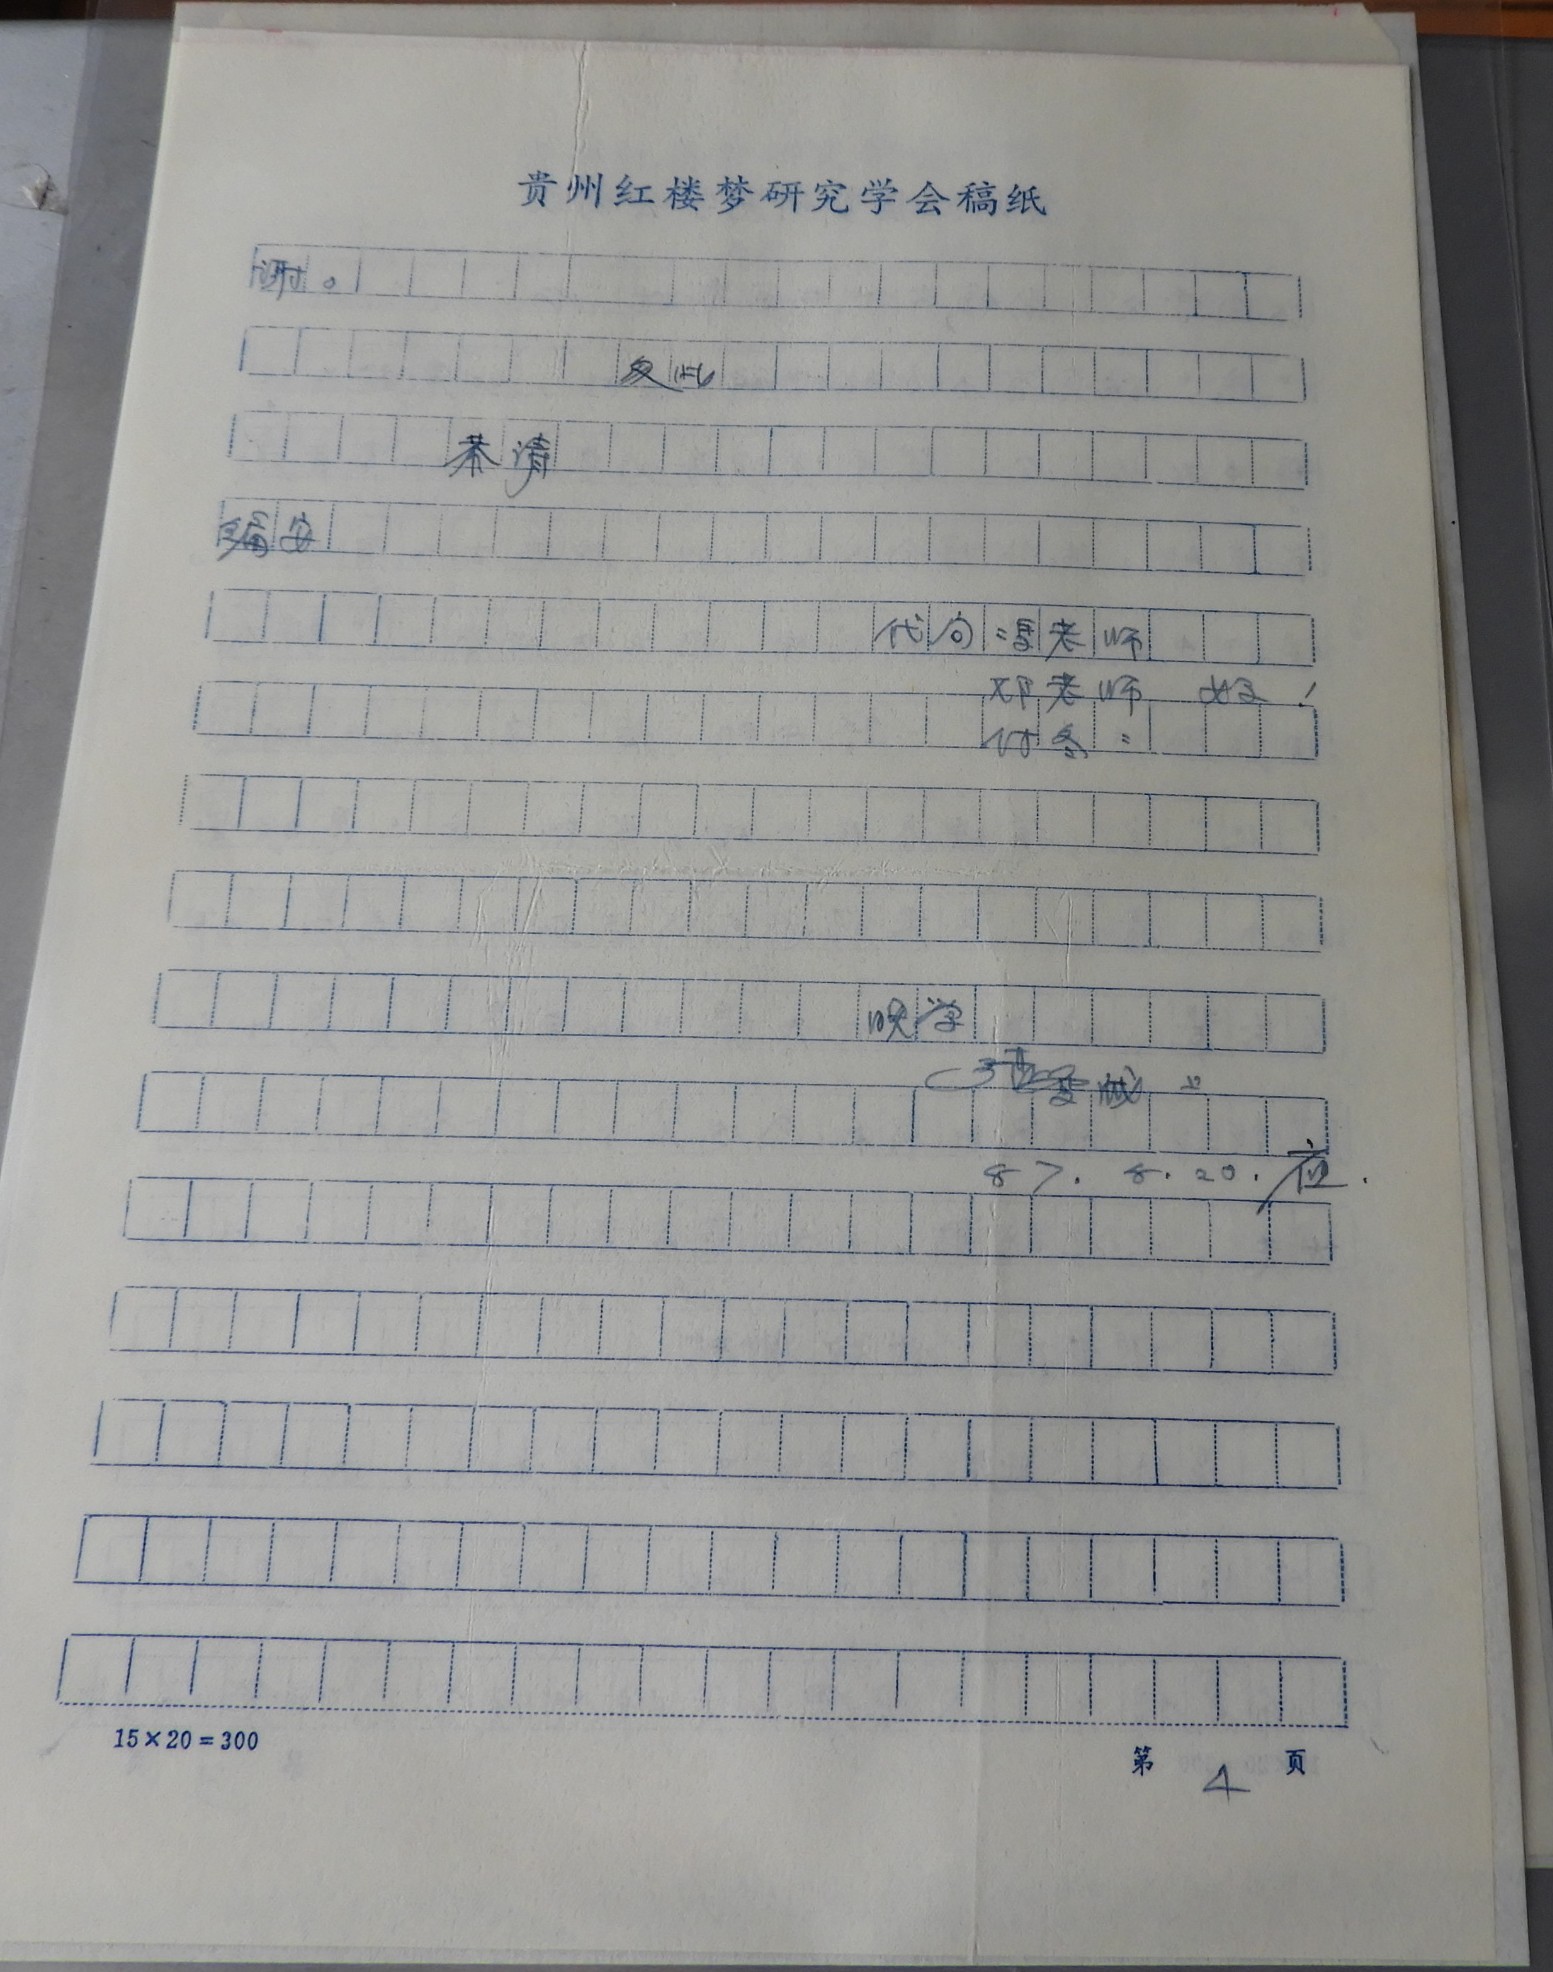 贵州红楼梦研究学会稿纸
谢。
专此
恭请
编安
代向冯老师
邓老师 好!
付条:
晚学
87. 8. 20.
15×20=300
第 4 页